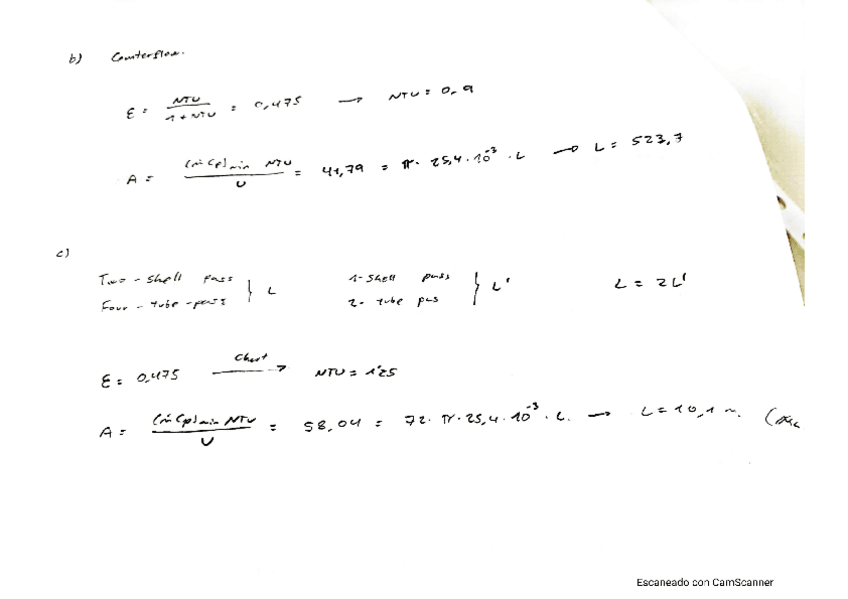 b) Counterflow.
ε = NTU / 1 + NTU = 0,475 → NTU = 0,9
A = (ṁ Cp)min NTU / U = 41,79 = π · 25,4 · 10⁻³ · L → L = 523,7
c)
Two - shell pass } L 1 - shell pass } L' L = 2L'
Four - tube - pass 2 - tube pas
ε = 0,475 Chart → NTU = 1'25
A = (ṁ Cp)min NTU / U = 58,04 = 72 · π · 25,4 · 10⁻³ · L. → L = 10,1 m.
Escaneado con CamScanner